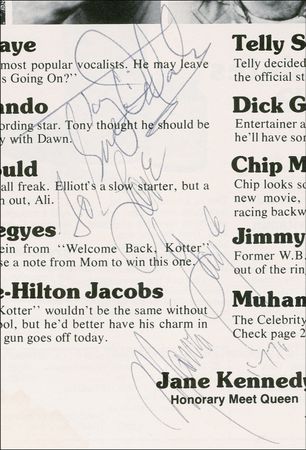 aye
most popular vocalists. He may leave
s Going On?"
ando
ording star. Tony thought he should be
y with Dawn.
uld
all freak. Elliott's a slow starter, but a
h out, Ali.
egyes
ein from "Welcome Back, Kotter"
se a note from Mom to win this one.
e-Hilton Jacobs
Kotter" wouldn't be the same without
ool, but he'd better have his charm in
gun goes off today.
Telly S
Telly decided
the official st
Dick G
Entertainer a
he'll have son
Chip M
Chip looks s
new movie,
racing backw
Jimmy
Former W.B.
out of the rin
Muham
The Celebrity
Check page 2
Jane Kennedy
Honorary Meet Queen
Love